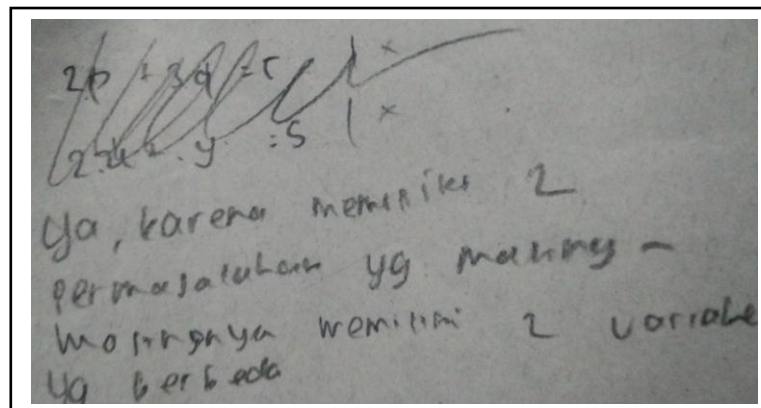 2p + 3q = 5 | x
2x - y = 5 | x
Ya, karena memiliki 2
permasalahan yg masing -
masingnya memiliki 2 variabe
yg berbeda